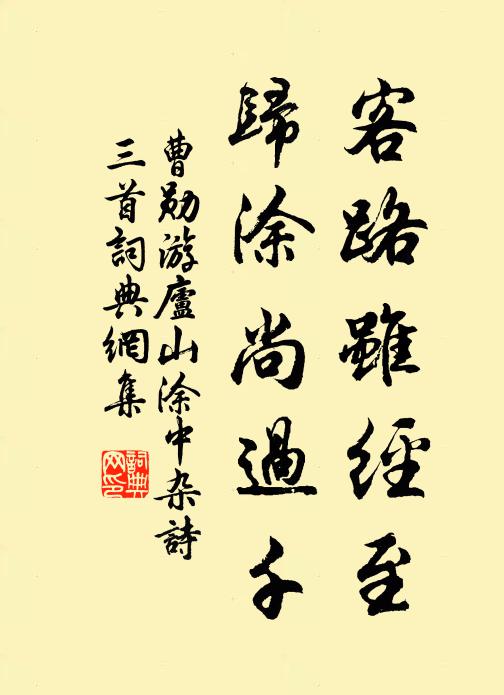 客路雖經至
歸涂尚過千
曹勛游廬山涂中杂詩
三首詞典網集
詞典網印